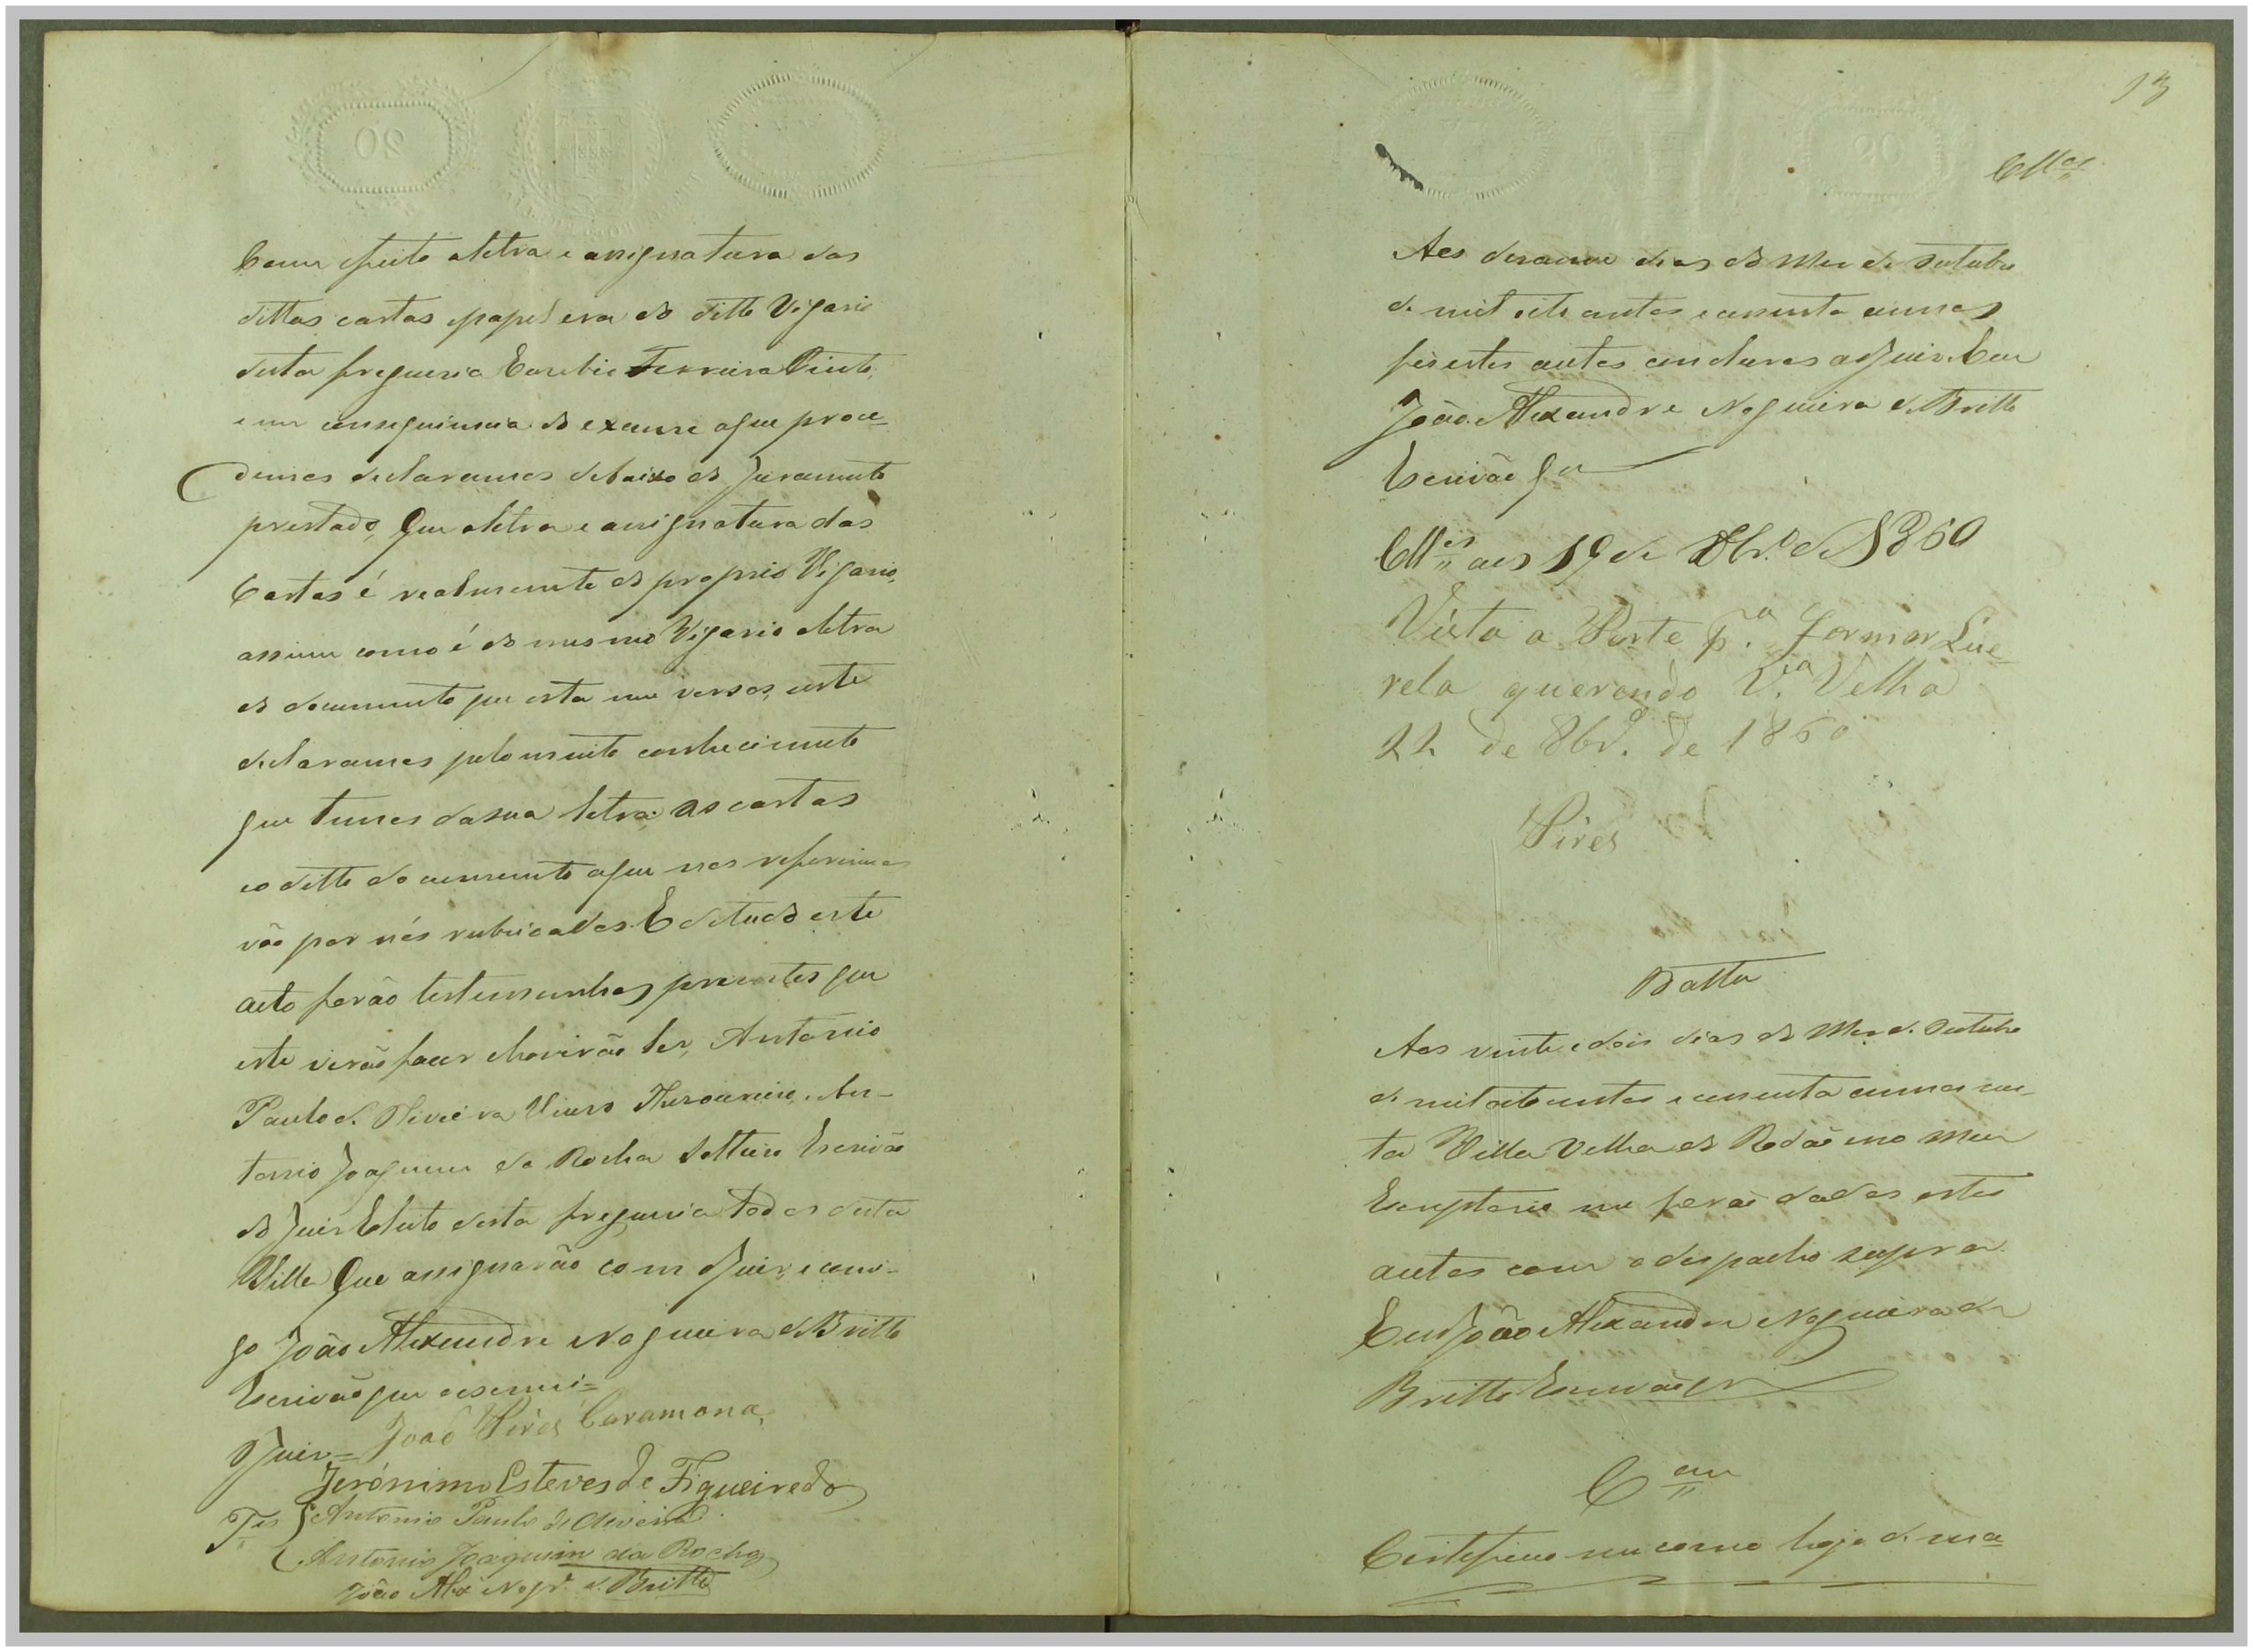 Com efeito a letra e assignatura das
dittas cartas e papel era do ditto Vigario
desta freguesia Euzebio Ferreira Pinto,
e em conseguimcia do exame a que proce-
demos declaramos debaixo do Juramento
prestado, Que a letra e assignatura das
Cartas é realmente do proprio Vigario,
assim como é do mesmo Vigario a letra
do documento que esta no verso, este
declaramos pelo muito conhecimento
que temos da sua letra: as cartas
e o ditto documento a que nos referimos
vão por nós rubricados. E de tudo este
auto forão testemunhas prezentes que
este virão fazer e houvirão ler, Antonio
Paulo d'Oliveira Thesoureiro, An-
tonio Joaquim da Rocha Escrivão
do Juis Eleito desta freguesia todos desta
Villa Que assignarão com o Juis, e comi-
go João Alexandre Nogueira de Britto
Escrivão que o escrevi =
O Juis = João Pires Caramona,
Jerónimo Esteves de Figueiredo
Tes Antonio Paulo de Oliveira
Antonio Joaquim da Rocha
João Alex Nogr.a de Britto
13
Cllos
Aos desanove dias do Mes de Outubro
de mil oito centos e cessenta annos
fis estes autos concluzos ao Juis. Eu
João Alexandre Nogueira de Britto
Escrivão
Cllos aos 19 de 8br.o de 1860
Vista a Parte p.a formar Que-
rela querendo V.a Velha
22 de 8br.o de 1860
Pires
Datta
Aos vinte e dois dias do Mes de Outubro
de mil oito centos e cessenta annos nes-
ta Villa Velha do Rodão e no meu
Escriptorio me forão dados estes
autos com o despacho supra.
Eu João Alexandre Nogueira de
Britto Escrivão
Cam
Certefico em como hoje de ma